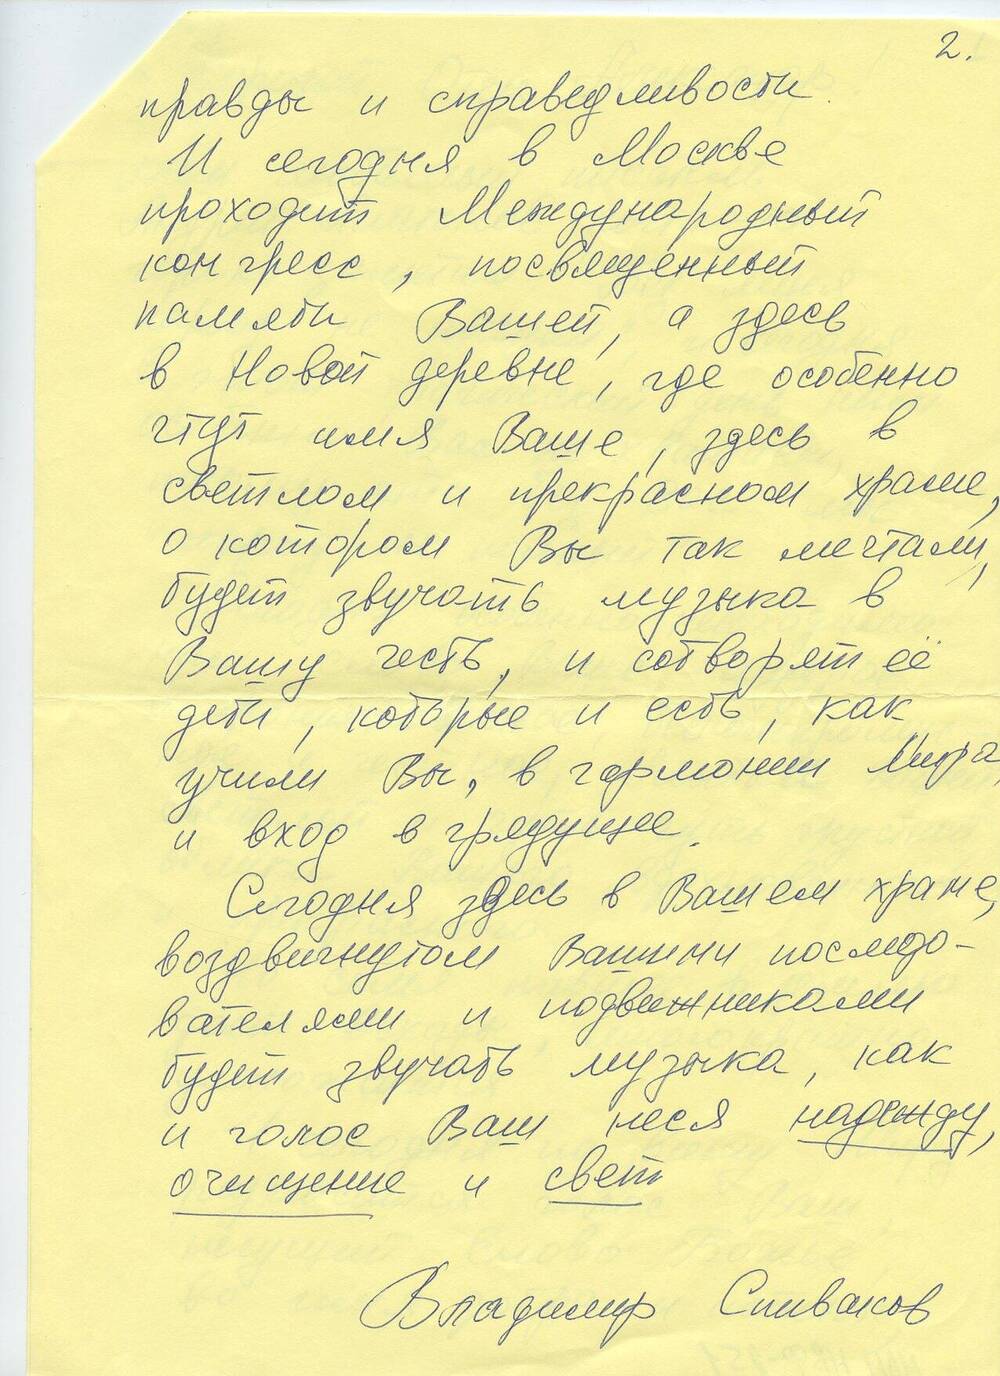 2.
правды и справедливости.
И сегодня в Москве
проходит Международный
конгресс, посвященный
памяти Вашей, а здесь
в Новой деревне, где особенно
чтут имя Ваше, здесь в
светлом и прекрасном храме,
о котором Вы так мечтали,
будет звучать музыка в
Вашу честь, и сотворят её
дети, которые и есть, как
учили Вы, в гармонии Мира,
и вход в грядущее.
Сегодня здесь в Вашем храме,
воздвигнутом Вашими последо-
вателями и подвижниками
будет звучать музыка, как
и голос Ваш неся надежду,
очищение и свет
Владимир Спиваков